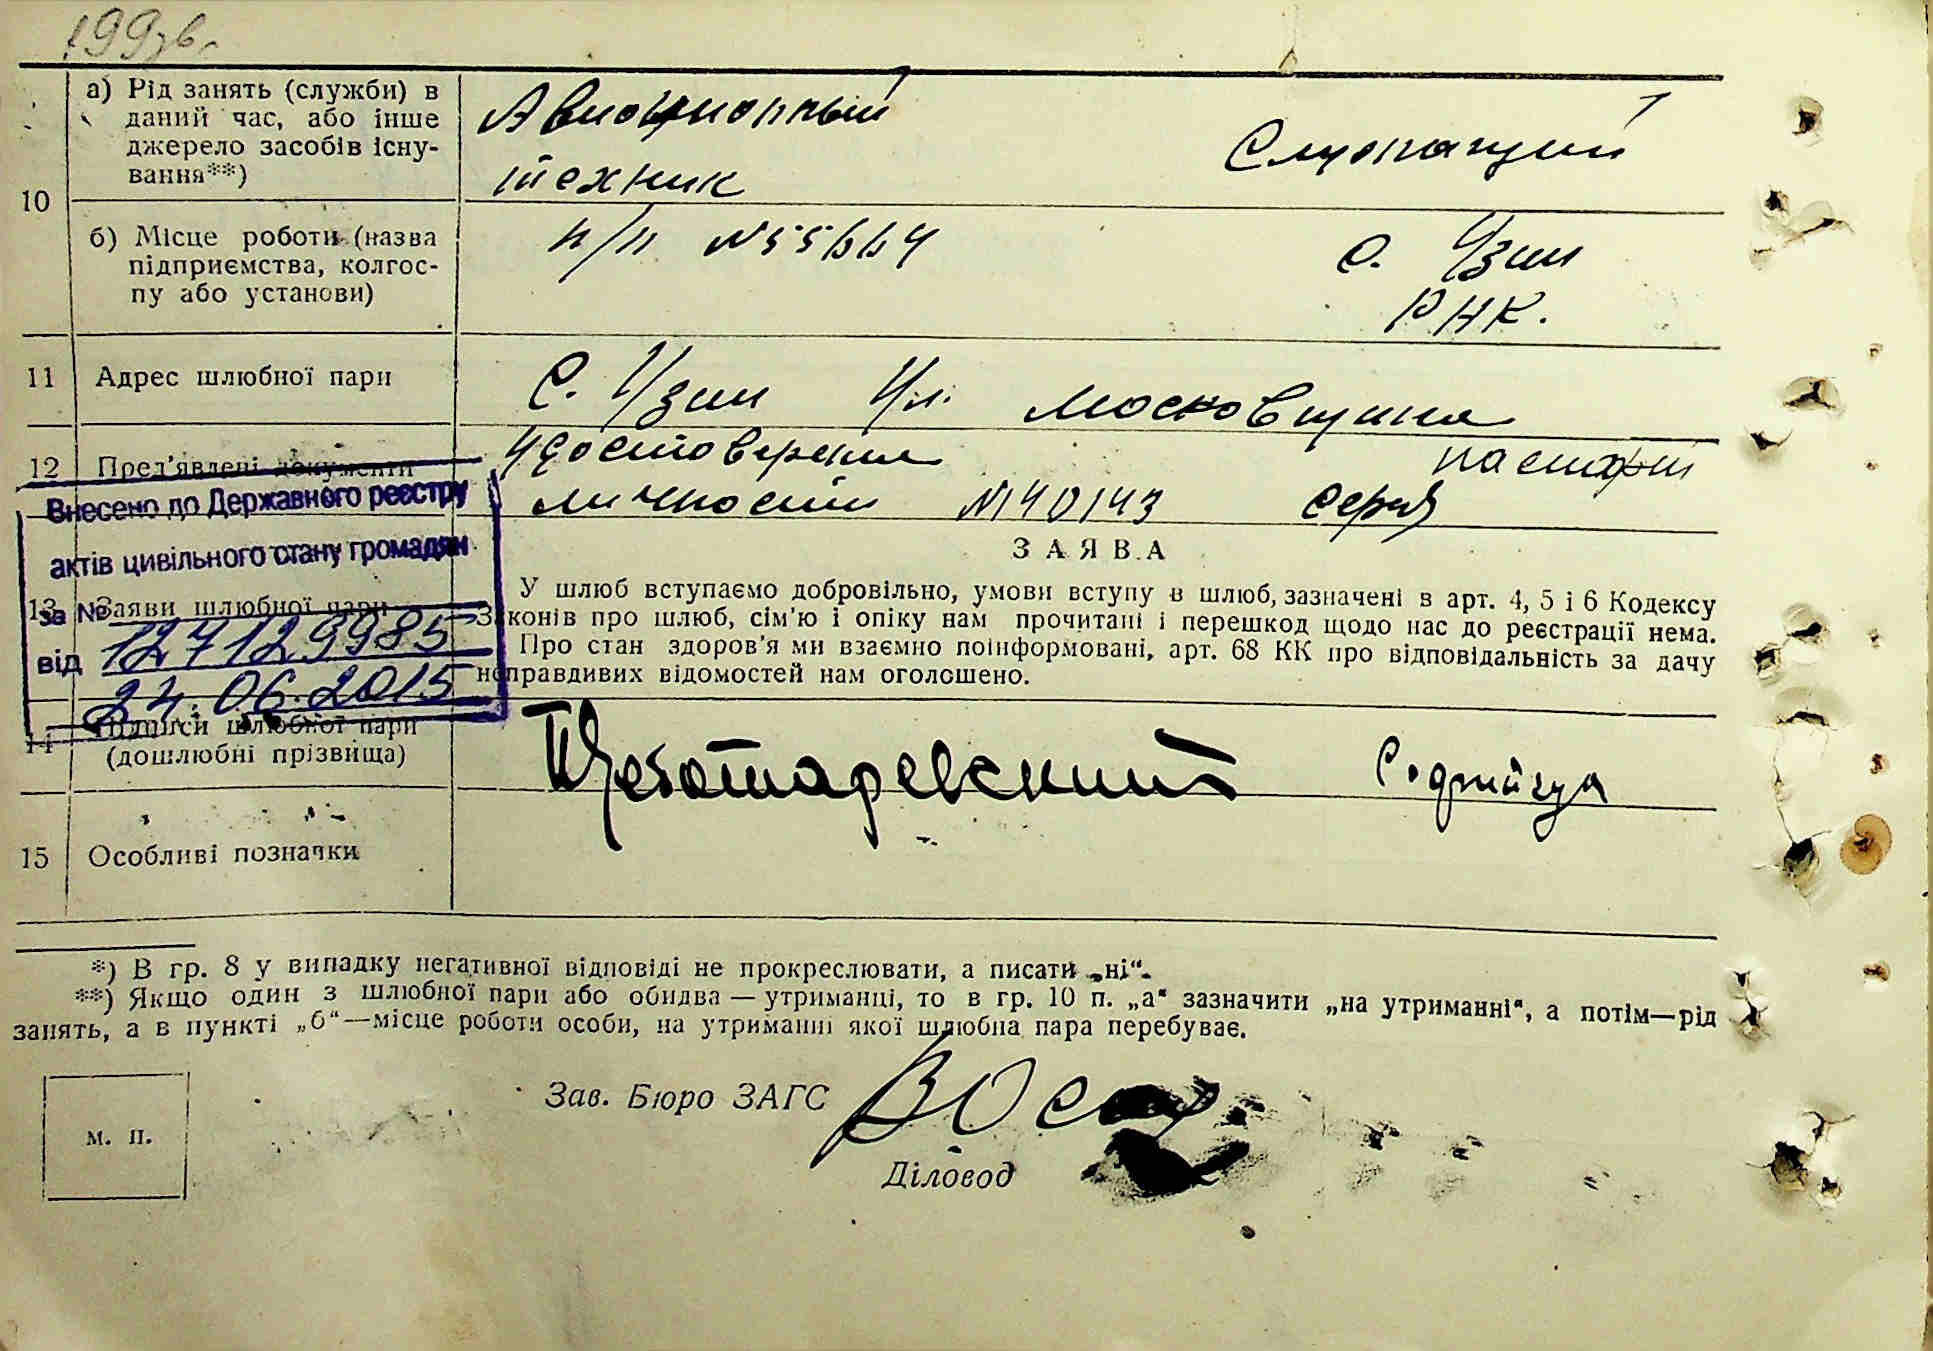 199зв.
10
а) Рід занять (служби) в
даний час, або інше
джерело засобів існу-
вання**)
Авиоционный
техник
Служащий
б) Місце роботи (назва
підприємства, колгос-
пу або установи)
п/п №55664
с. Узин
РНК.
11 Адрес шлюбної пари
С. Узин Ул. Московщина
12 Пред'явлені документи
Удостоверения
личности №140143
паспорт
серия
Внесено до Державного реєстру
актів цивільного стану громадян
за № 127129985
від 24.06.2015
13 Заяви шлюбної пари
ЗАЯВА
У шлюб вступаємо добровільно, умови вступу в шлюб, зазначені в арт. 4, 5 і 6 Кодексу
Законів про шлюб, сім'ю і опіку нам прочитані і перешкод щодо нас до реєстрації нема.
Про стан здоров'я ми взаємно поінформовані, арт. 68 КК про відповідальність за дачу
неправдивих відомостей нам оголошено.
14 Підписи шлюбної пари
(дошлюбні прізвища)
15 Особливі позначки
*) В гр. 8 у випадку негативної відповіді не прокреслювати, а писати „ні“.
**) Якщо один з шлюбної пари або обидва — утриманці, то в гр. 10 п. „а“ зазначити „на утриманні“, а потім—рід
занять, а в пункті „б“—місце роботи особи, на утриманні якої шлюбна пара перебуває.
Зав. Бюро ЗАГС
Діловод
М. П.